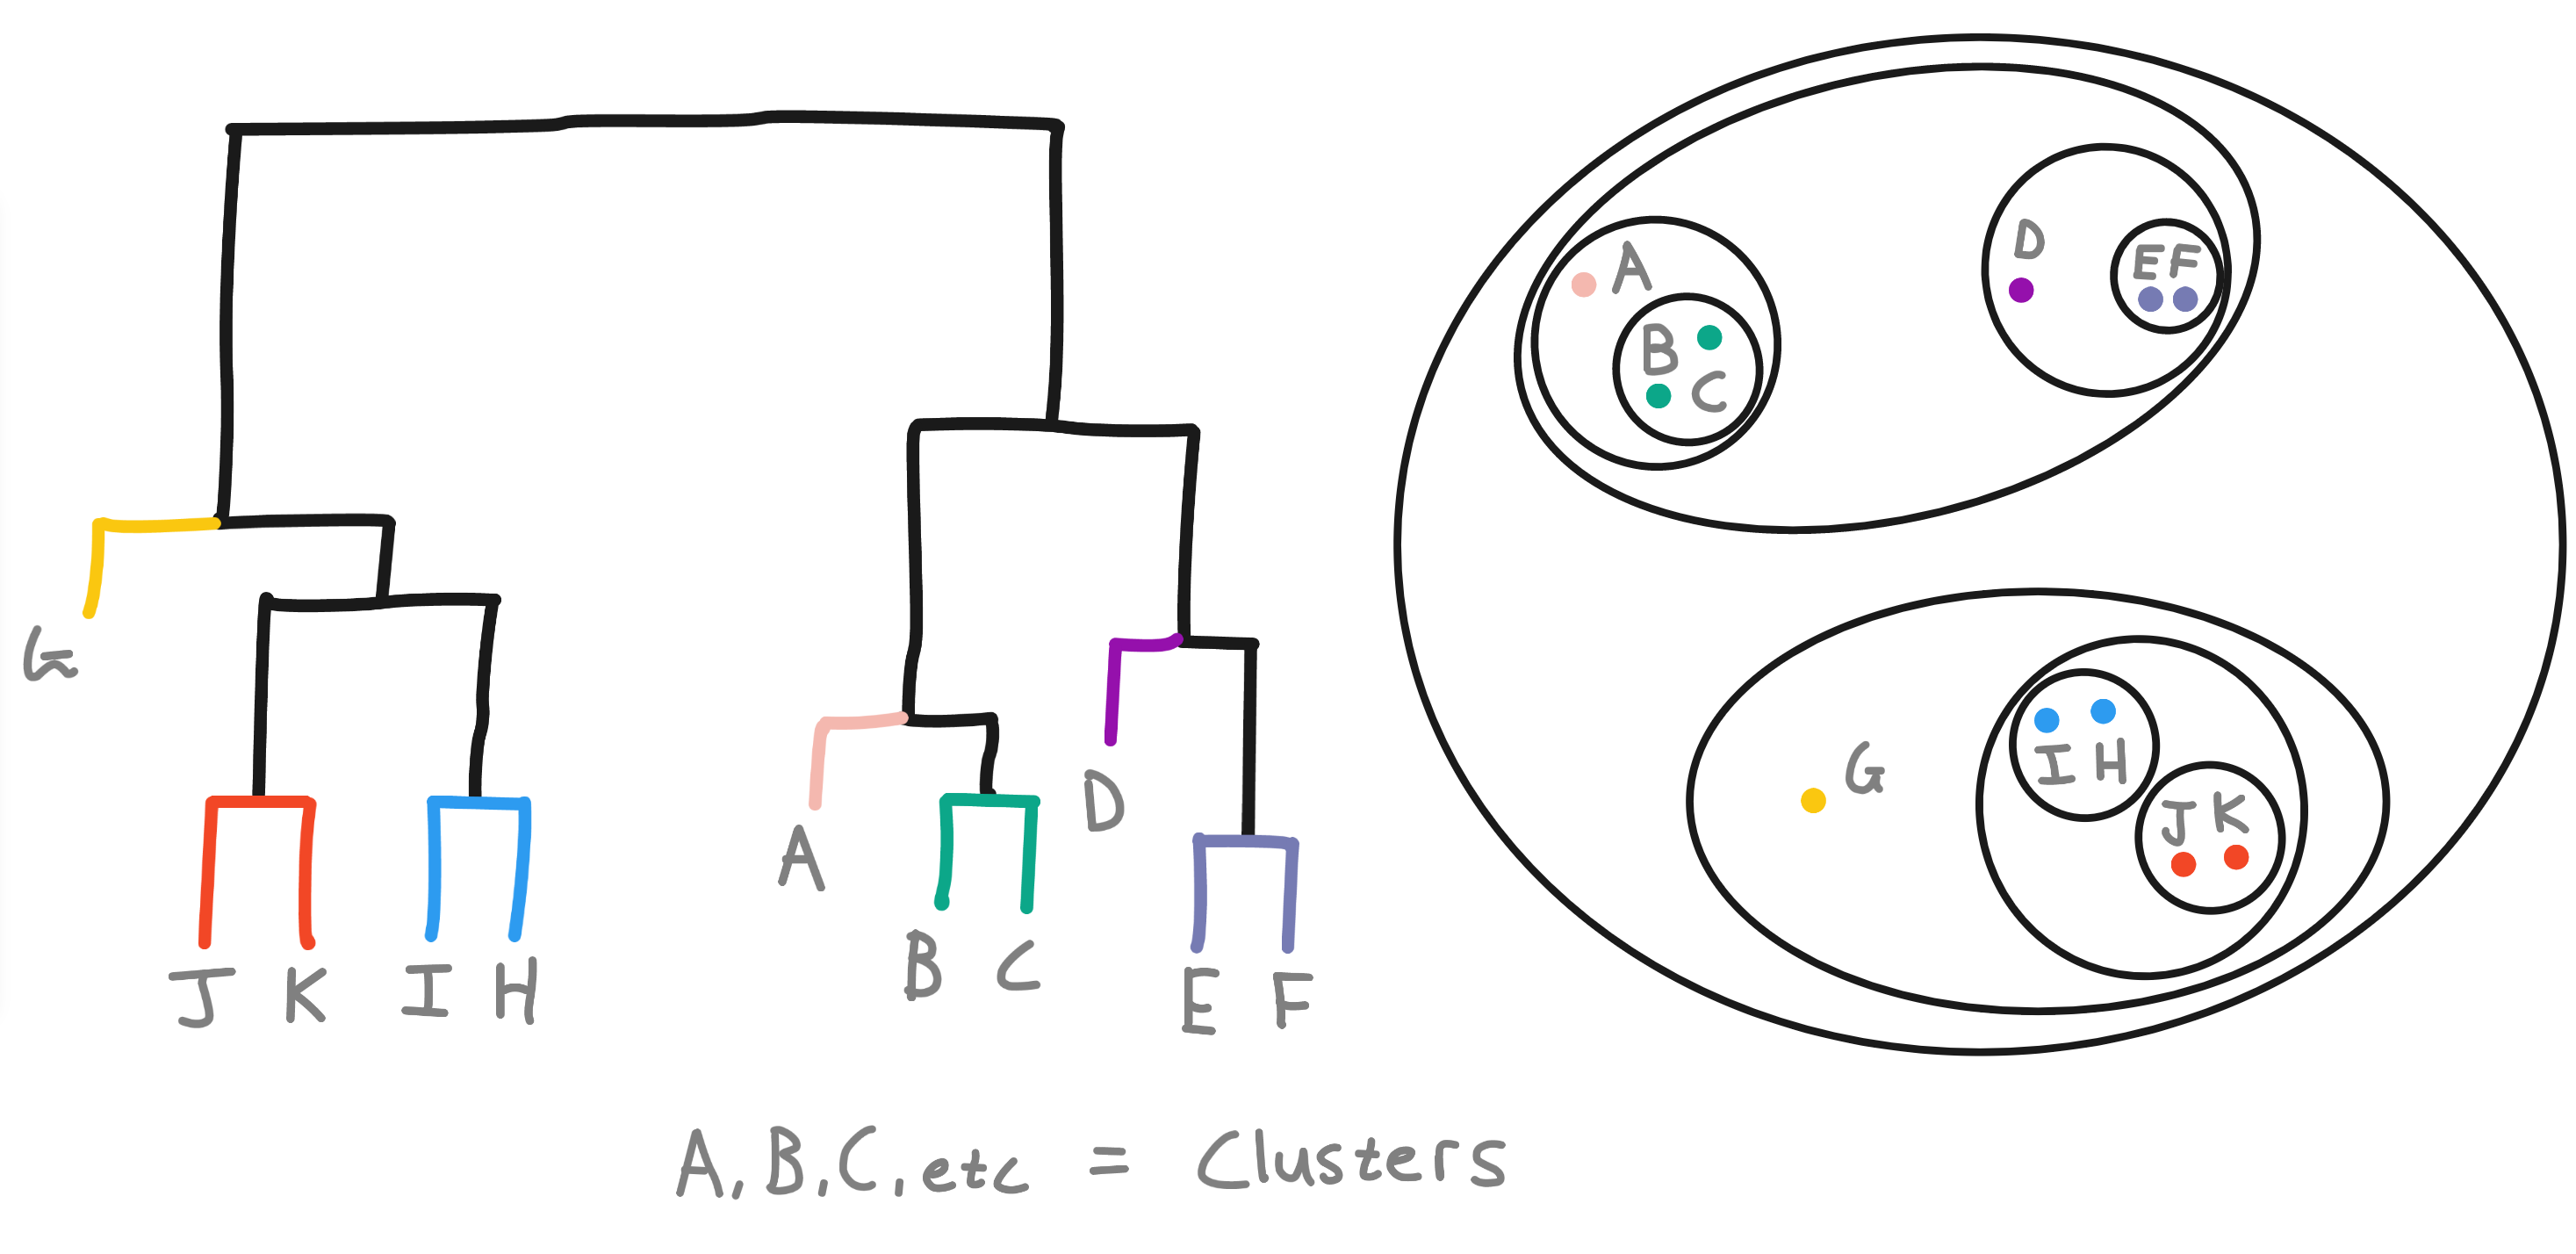 G
J K I H
A
B C
D
E F
A
B
C
D
E F
G
I H
J K
A, B, C, etc = Clusters